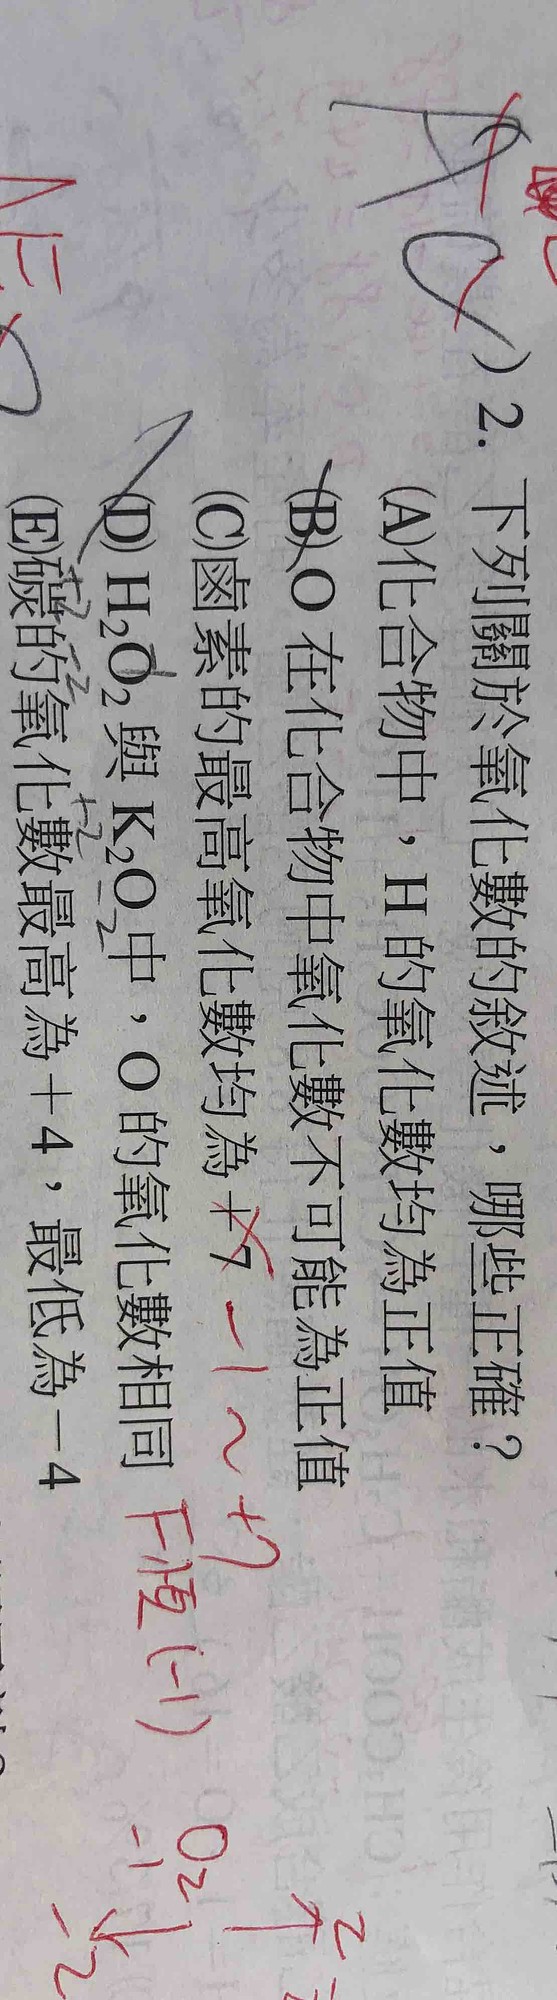 AC ) 2. 下列關於氧化數的敘述，哪些正確？
(A)化合物中，H 的氧化數均為正值
(B)O 在化合物中氧化數不可能為正值
(C)鹵素的最高氧化數均為+7 -1~+7
(D) H₂O₂與 K₂O 中，O 的氧化數相同 F恆(-1)
+2 -2 +2 -2
(E)碳的氧化數最高為+4，最低為-4
O₂
-1
-2
2